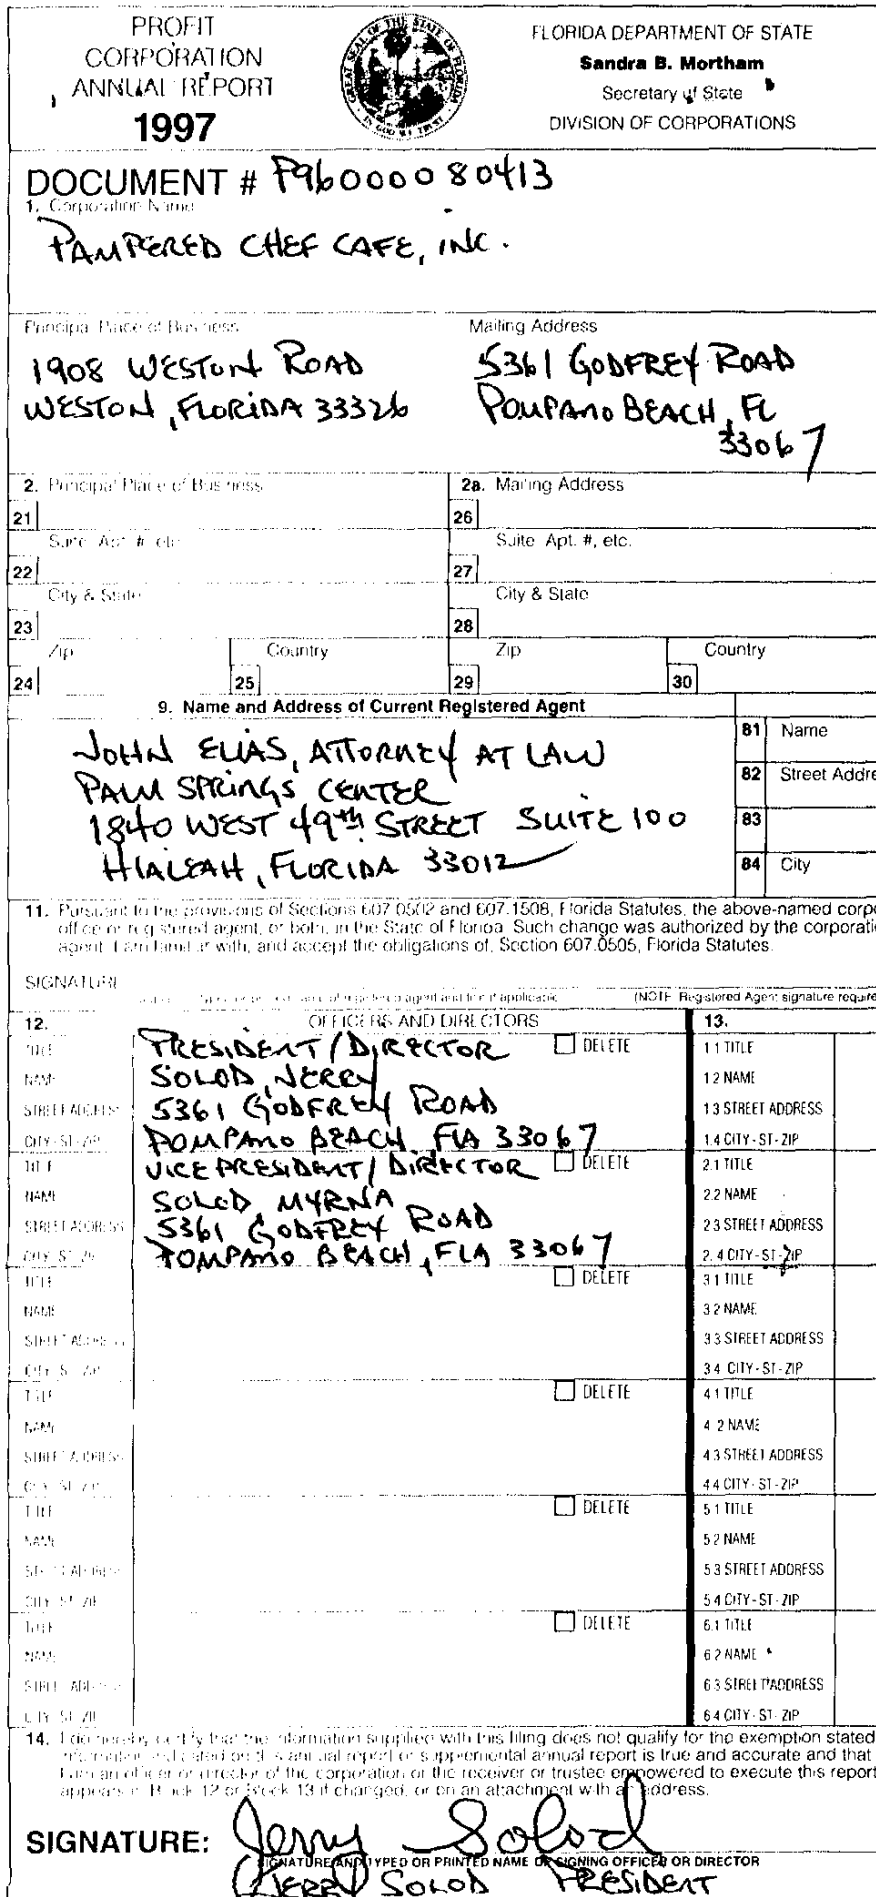 PROFIT
CORPORATION
ANNUAL REPORT
1997
GREAT SEAL OF THE STATE OF FLORIDA
IN GOD WE TRUST
FLORIDA DEPARTMENT OF STATE
Sandra B. Mortham
Secretary of State
DIVISION OF CORPORATIONS
DOCUMENT # P96000080413
1. Corporation Name
PAMPERED CHEF CAFE, INC.
Principal Place of Business
1908 WESTON ROAD
WESTON, FLORIDA 33326
Mailing Address
5361 GODFREY ROAD
POMPANO BEACH, FL
33067
2. Principal Place of Business
2a. Mailing Address
21
26
Suite, Apt. #, etc.
Suite Apt. #, etc.
22
27
City & State
City & State
23
28
Zip
Country
Zip
Country
24
25
29
30
9. Name and Address of Current Registered Agent
JOHN ELIAS, ATTORNEY AT LAW
PALM SPRINGS CENTER
1840 WEST 49th STREET SUITE 100
HIALEAH, FLORIDA 33012
81 Name
82 Street Addre
83
84 City
11. Pursuant to the provisions of Sections 607.0502 and 607.1508, Florida Statutes, the above-named corpo
office or registered agent, or both, in the State of Florida. Such change was authorized by the corporati
agent. I am familiar with, and accept the obligations of, Section 607.0505, Florida Statutes.
SIGNATURE
name of registered agent and title if applicable
(NOTE Registered Agent signature require
12. OFFICERS AND DIRECTORS
13.
TITLE PRESIDENT/DIRECTOR DELETE
NAME SOLOD, JERRY
STREET ADDRESS 5361 GODFREY ROAD
CITY-ST-ZIP POMPANO BEACH, FLA 33067
1.1 TITLE
1.2 NAME
1.3 STREET ADDRESS
1.4 CITY-ST-ZIP
TITLE VICE PRESIDENT/DIRECTOR DELETE
NAME SOLOD, MYRNA
STREET ADDRESS 5361 GODFREY ROAD
CITY-ST-ZIP POMPANO BEACH, FLA 33067
2.1 TITLE
2.2 NAME
2.3 STREET ADDRESS
2.4 CITY-ST-ZIP
TITLE DELETE
NAME
STREET ADDRESS
CITY-ST-ZIP
3.1 TITLE
3.2 NAME
3.3 STREET ADDRESS
3.4 CITY-ST-ZIP
TITLE DELETE
NAME
STREET ADDRESS
CITY-ST-ZIP
4.1 TITLE
4.2 NAME
4.3 STREET ADDRESS
4.4 CITY-ST-ZIP
TITLE DELETE
NAME
STREET ADDRESS
CITY-ST-ZIP
5.1 TITLE
5.2 NAME
5.3 STREET ADDRESS
5.4 CITY-ST-ZIP
TITLE DELETE
NAME
STREET ADDRESS
CITY-ST-ZIP
6.1 TITLE
6.2 NAME
6.3 STREET ADDRESS
6.4 CITY-ST-ZIP
14. I do hereby certify that the information supplied with this filing does not qualify for the exemption stated
information indicated on this annual report or supplemental annual report is true and accurate and that
I am an officer or director of the corporation or the receiver or trustee empowered to execute this report
appears in Block 12 or Block 13 if changed, or on an attachment with an address.
SIGNATURE: Jerry Solod
SIGNATURE AND TYPED OR PRINTED NAME OF SIGNING OFFICER OR DIRECTOR
JERRY SOLOD PRESIDENT